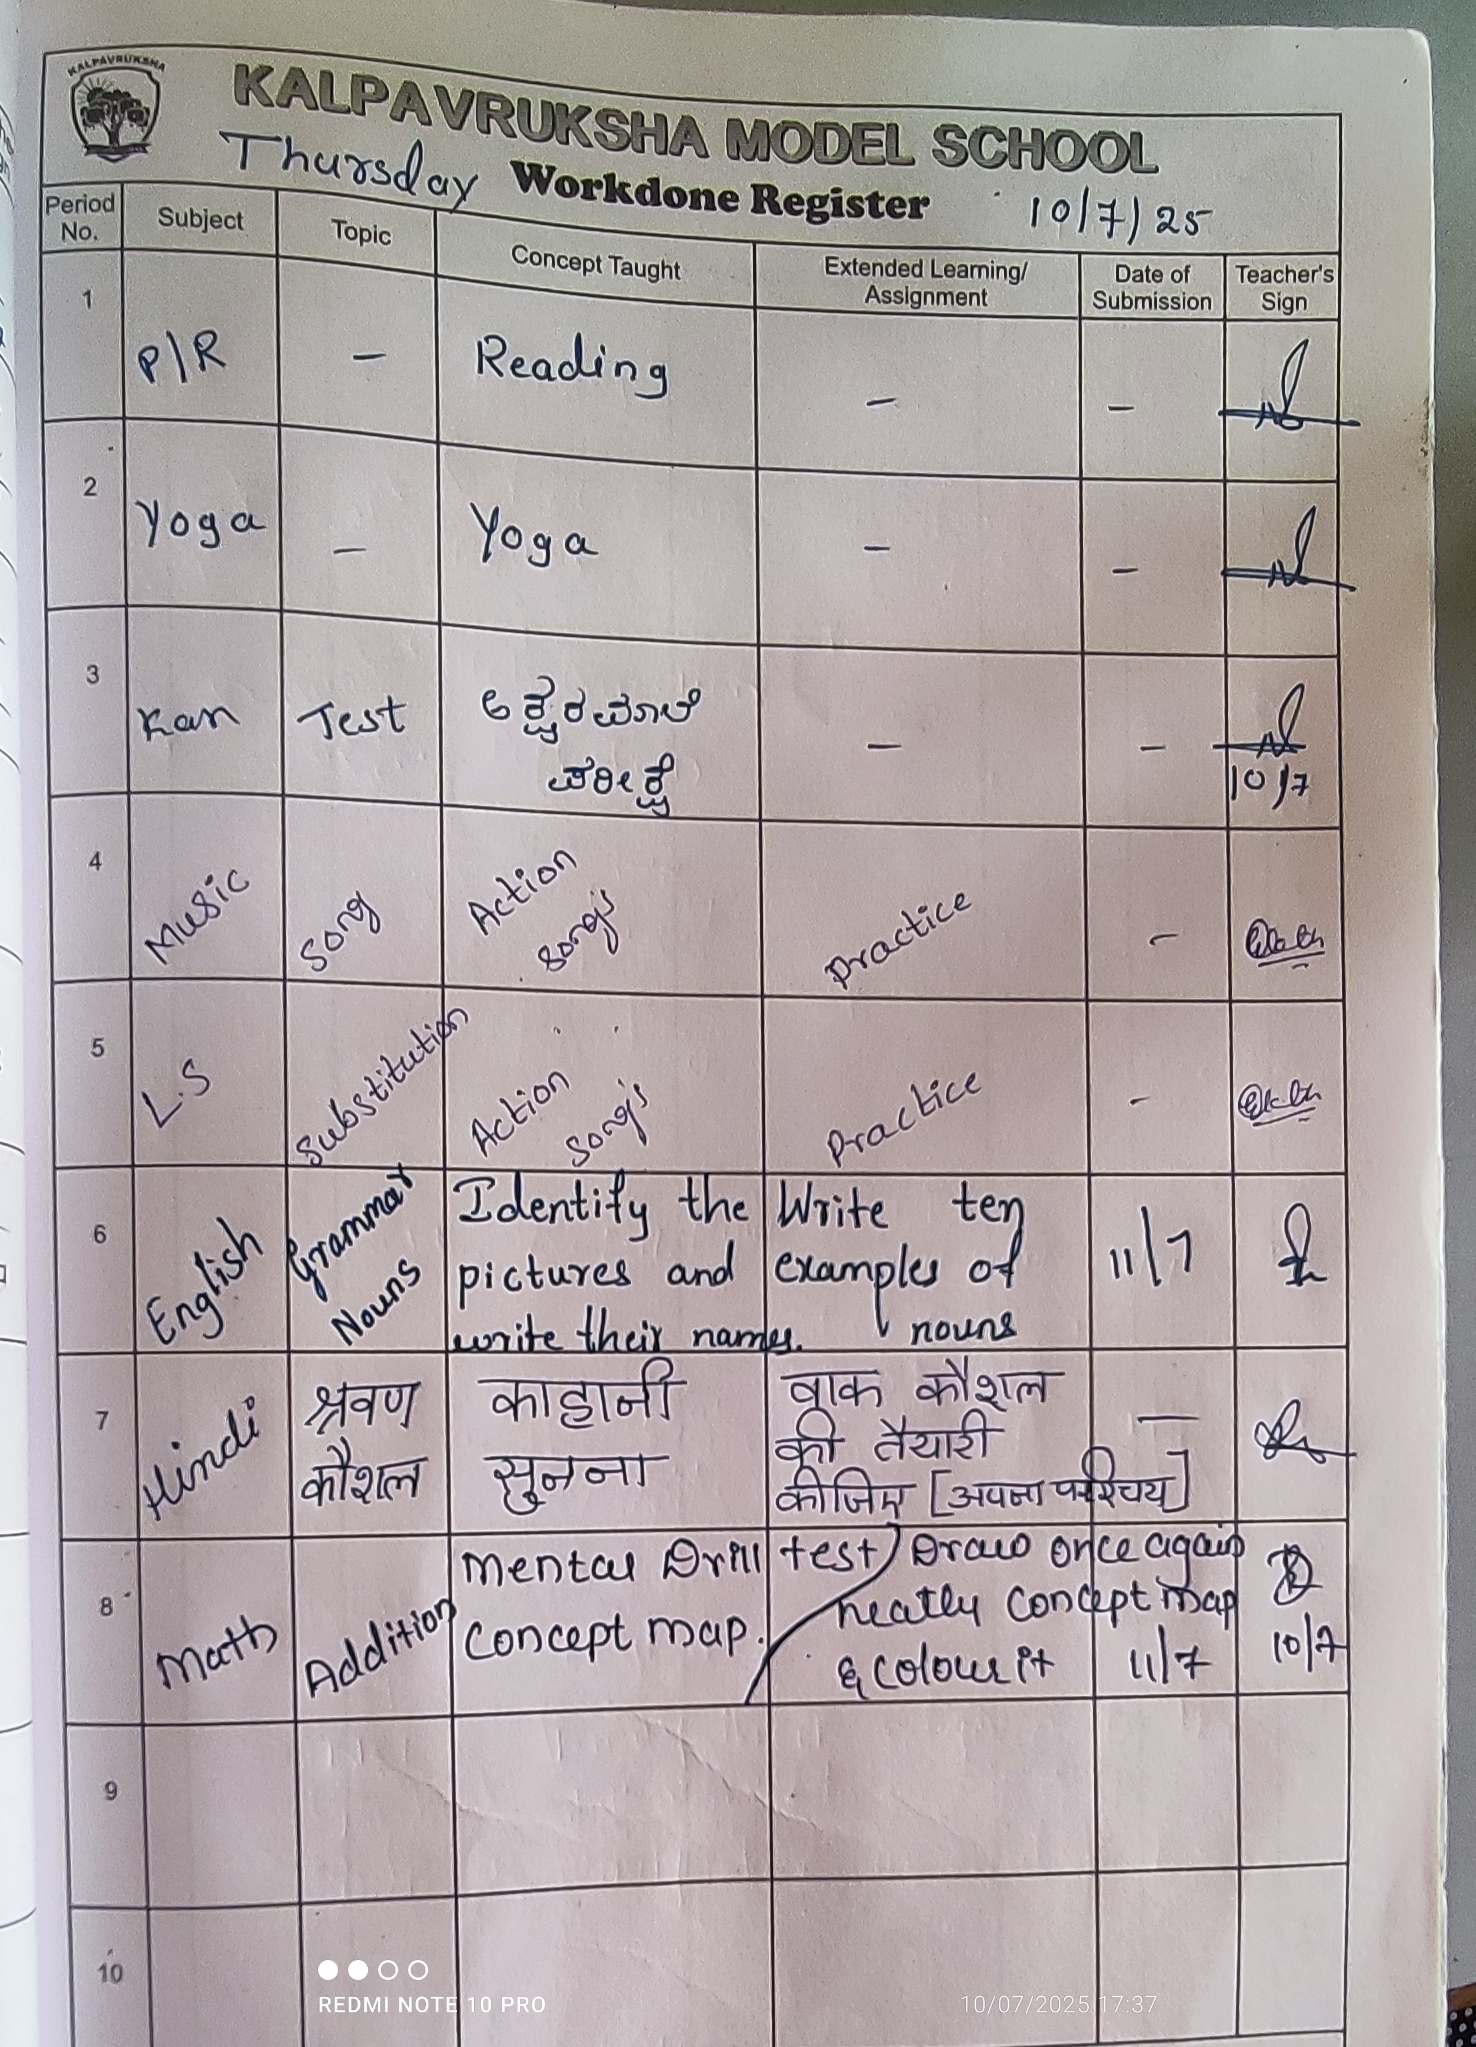 KALPAVRUKSHA
KALPAVRUKSHA MODEL SCHOOL
Thursday Workdone Register 10/7/25
Period No. Subject Topic Concept Taught Extended Learning/ Assignment Date of Submission Teacher's Sign
1 P/R - Reading - -
2 Yoga - Yoga - -
3 Kan Test ಅಕ್ಷರಮಾಲೆ - -
ಪರೀಕ್ಷೆ 10/7
4 Music Song Action Practice -
Song's
5 L.S Substitution Action Practice -
Song's
6 English Grammar Identify the Write ten 11/7
Nouns pictures and examples of
write their names. nouns
7 Hindi श्रवण काहानी वाक कौशल —
कौशल सुनना की तैयारी
कीजिए [अपना परिचय]
8 Math Addition Mental Drill test Draw once again
Concept map. neatly concept map 10/7
& colour it 11/7
9
10
REDMI NOTE 10 PRO 10/07/2025 17:37